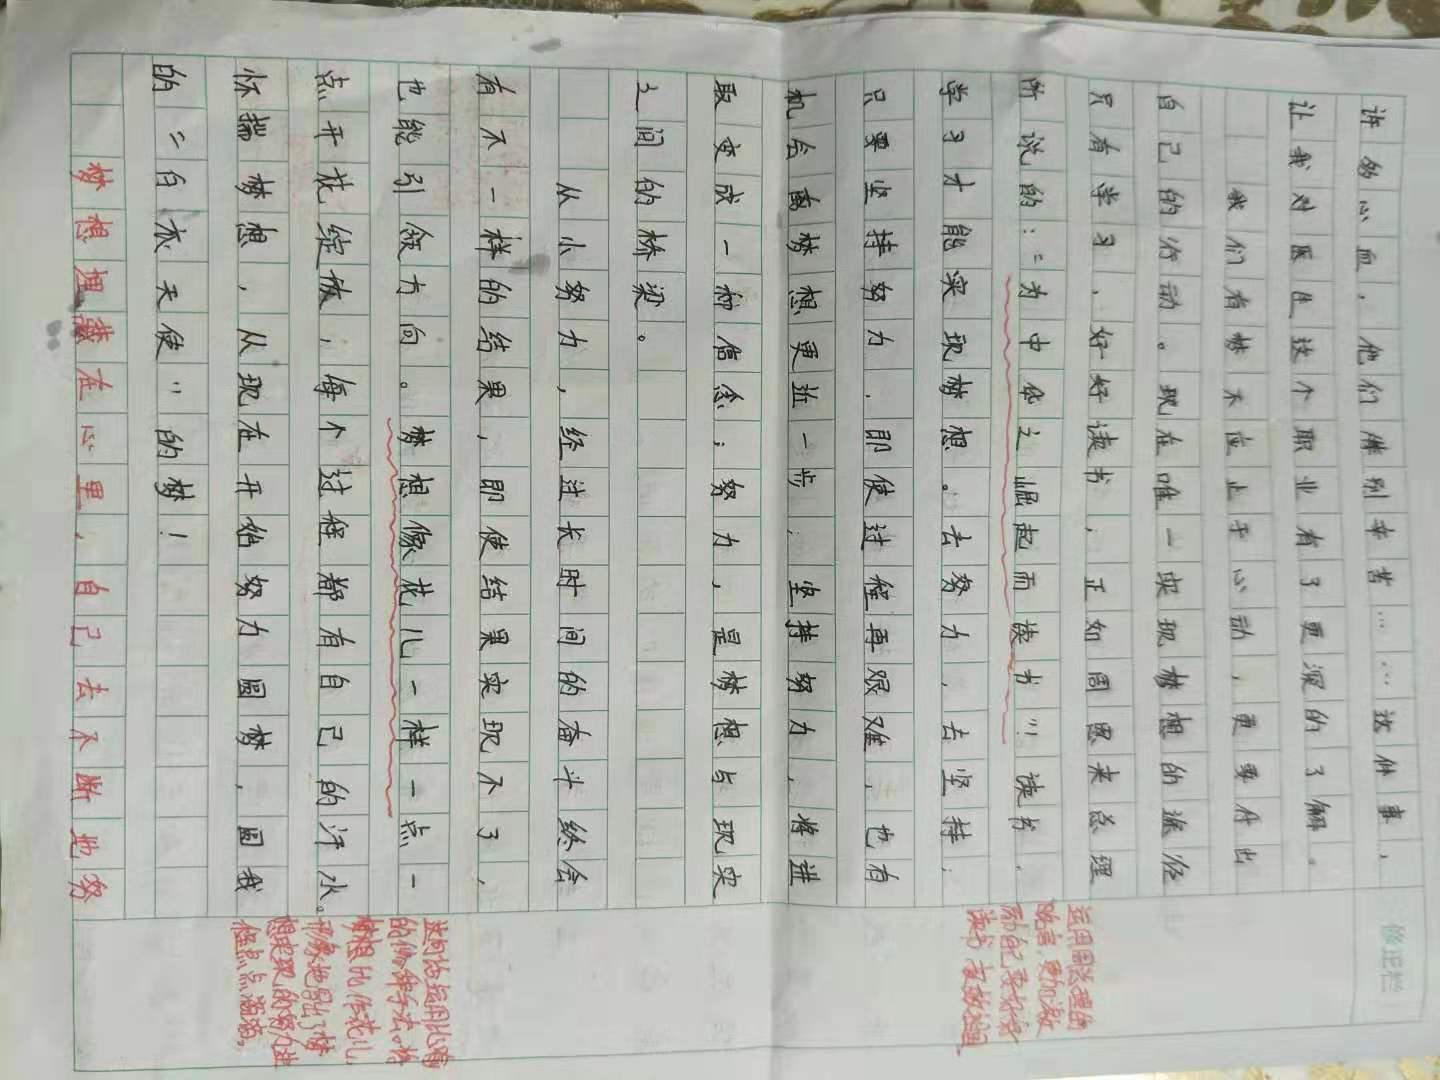 许多心血，他们特别辛苦……这件事，
让我对医生这个职业有了更深的了解。
我们有梦不应止于心动，更要付出
自己的行动。现在唯一实现梦想的途径
只有学习、好好读书，正如周恩来总理
所说的："为中华之崛起而读书"读书、
学习才能实现梦想。去努力，去坚持，
只要坚持努力，即使过程再艰难，也有
机会离梦想更近一步，坚持努力，将进
取变成一种信念；努力，是梦想与现实
之间的桥梁。
从小努力，经过长时间的奋斗终会
有不一样的结果，即使结果实现不了，
也能引领方向。梦想像花儿一样一点一
点开花绽放，每个过程都有自己的汗水。
怀揣梦想，从现在开始努力圆梦，圆我
的"白衣天使"的梦！
梦想埋藏在心里，自己去不断地努
修正栏
运用周总理的
名言，更加激
励自己要好好
读书
这句话运用比喻
的修辞手法，将
梦想比作花儿，
形象地写出了梦
想实现的努力过
程点点滴滴。